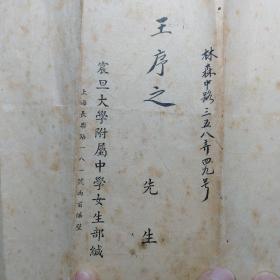 林森中路三五八弄四九号
王序之 先生
震旦大學附屬中學女生部緘
上海長樂路一八一號